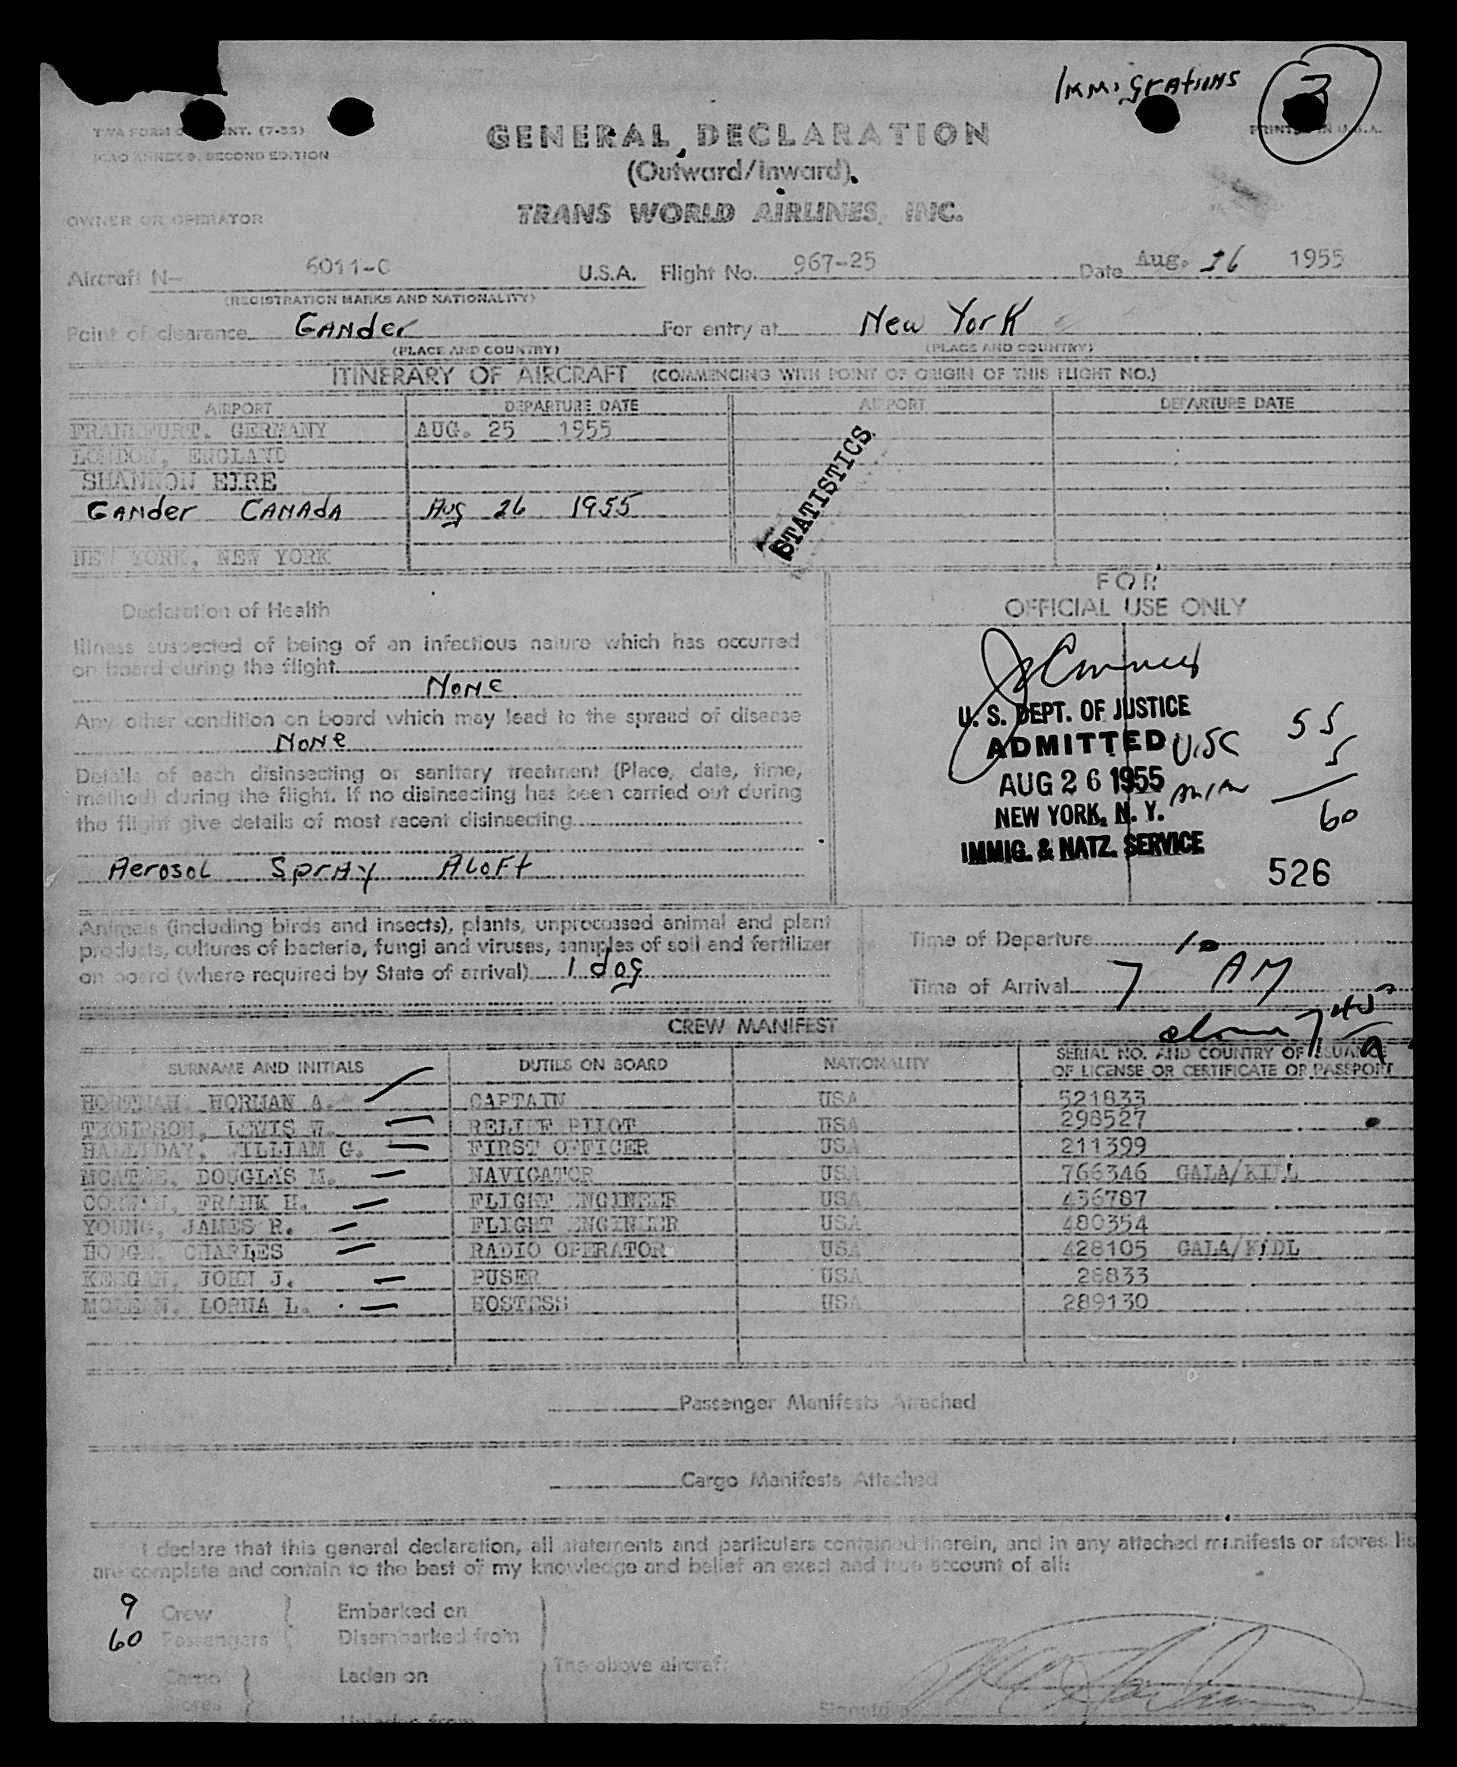 Immigrations 3
TWA FORM INT. (7-55)
PRINTED IN U.S.A.
ICAO ANNEX 9, SECOND EDITION
GENERAL DECLARATION
(Outward/Inward)
OWNER OR OPERATOR
TRANS WORLD AIRLINES, INC.
Aircraft N- 6011-C U.S.A. Flight No. 967-25 Date Aug. 26 1955
(REGISTRATION MARKS AND NATIONALITY)
Point of clearance Gander For entry at New York
(PLACE AND COUNTRY) (PLACE AND COUNTRY)
ITINERARY OF AIRCRAFT (COMMENCING WITH POINT OF ORIGIN OF THIS FLIGHT NO.)
AIRPORT DEPARTURE DATE AIRPORT DEPARTURE DATE
FRANKFURT, GERMANY AUG. 25 1955
LONDON, ENGLAND
SHANNON EIRE
Gander CANAdA Aug 26 1955
NEW YORK, NEW YORK
STATISTICS
Declaration of Health
Illness suspected of being of an infectious nature which has occurred
on board during the flight
None
Any other condition on board which may lead to the spread of disease
None
Details of each disinsecting or sanitary treatment (Place, date, time,
method) during the flight. If no disinsecting has been carried out during
the flight give details of most recent disinsecting
Aerosol Spray Aloft
FOR
OFFICIAL USE ONLY
U. S. DEPT. OF JUSTICE
ADMITTED USC 55
AUG 26 1955 5
NEW YORK, N. Y. 60
IMMIG. & NATZ. SERVICE
526
Animals (including birds and insects), plants, unprocessed animal and plant
products, cultures of bacteria, fungi and viruses, samples of soil and fertilizer
on board (where required by State of arrival) 1 dog
Time of Departure
Time of Arrival 7 10 AM
7 45 a
CREW MANIFEST
SURNAME AND INITIALS DUTIES ON BOARD NATIONALITY SERIAL NO. AND COUNTRY OF ISSUANCE
OF LICENSE OR CERTIFICATE OR PASSPORT
NORMAN A. CAPTAIN USA 521833
THOMPSON, LEWIS W. RELIEF PILOT USA 298527
HALLIDAY, WILLIAM G. FIRST OFFICER USA 211399
MCATEE, DOUGLAS M. NAVIGATOR USA 766346 GALA/KIDL
FRANK H. FLIGHT ENGINEER USA 436787
YOUNG, JAMES R. FLIGHT ENGINEER USA 480354
HODGE, CHARLES RADIO OPERATOR USA 428105 GALA/KIDL
KEEGAN, JOHN J. PUSER USA 28833
LORNA L. HOSTESS USA 289130
Passenger Manifests Attached
Cargo Manifests Attached
I declare that this general declaration, all statements and particulars contained therein, and in any attached manifests or stores lis
are complete and contain to the best of my knowledge and belief an exact and true account of all:
9 Crew Embarked on
60 Passengers Disembarked from
The above aircraft
Cargo Laden on
Stores
Unladen from
Signature